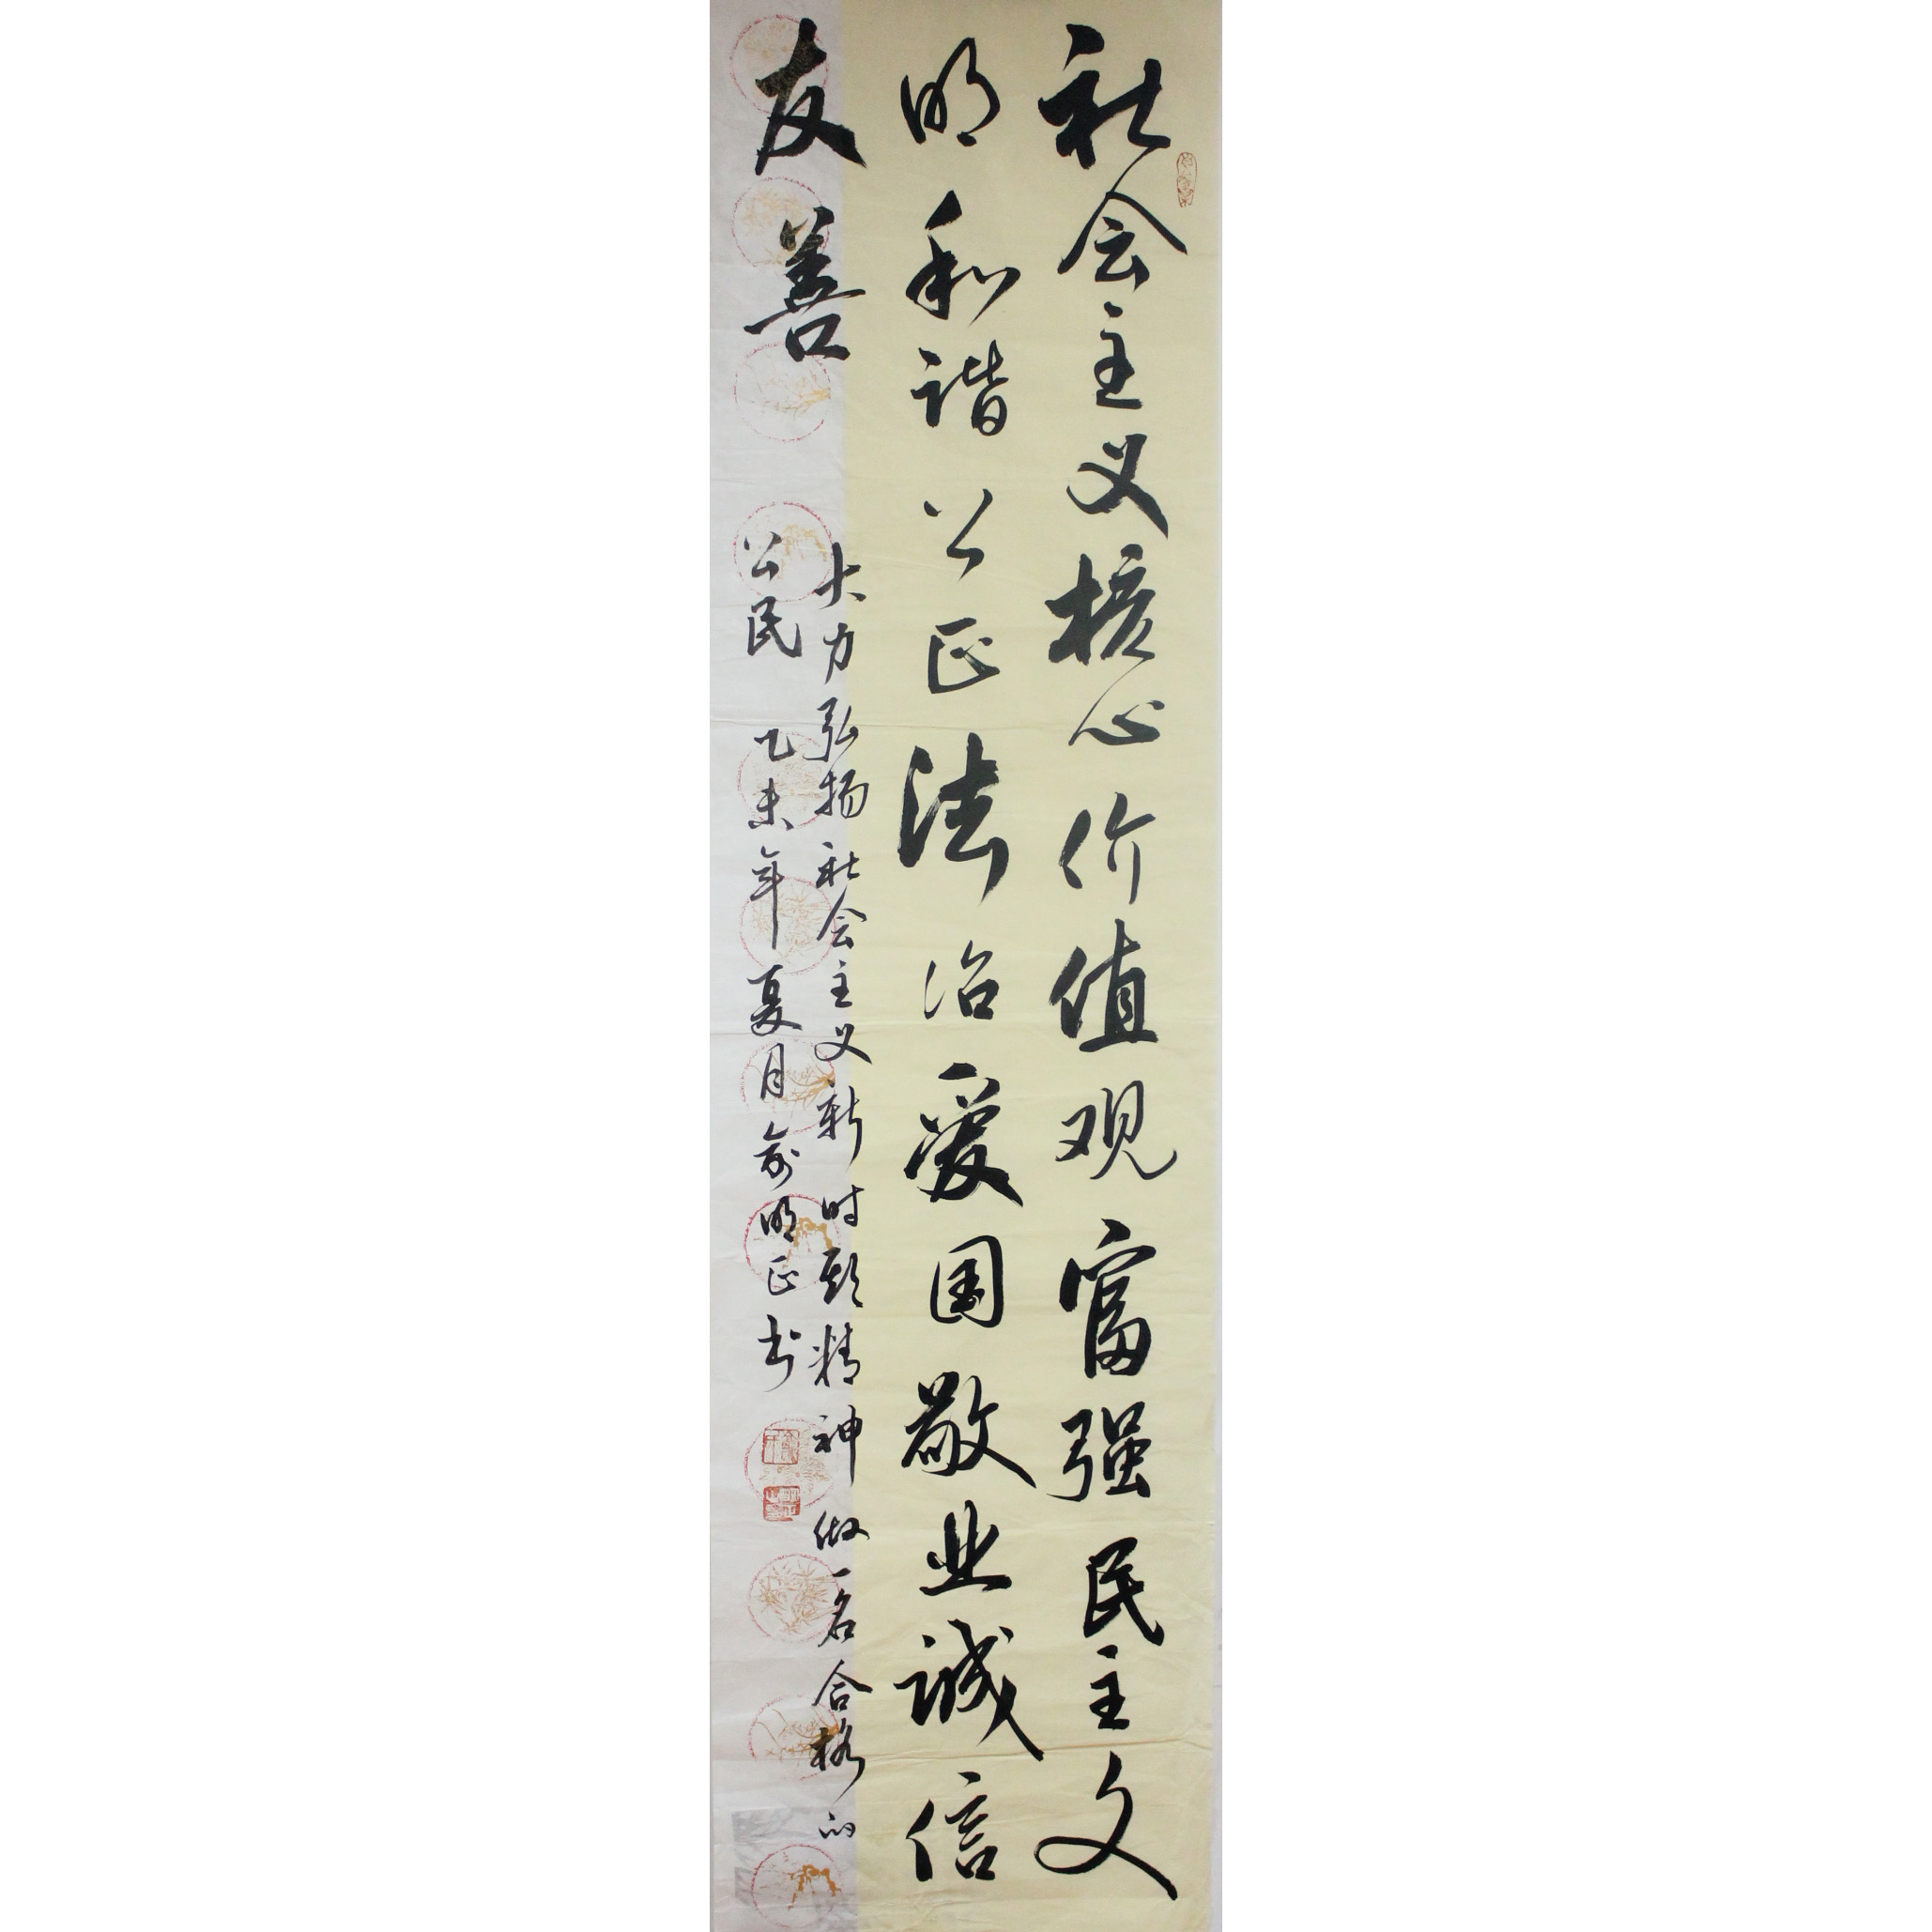 社会主义核心价值观富强民主文
明和谐公正法治爱国敬业诚信
友善
大力弘扬社会主义新时期精神做一名合格的
公民
乙未年夏月俞明正书